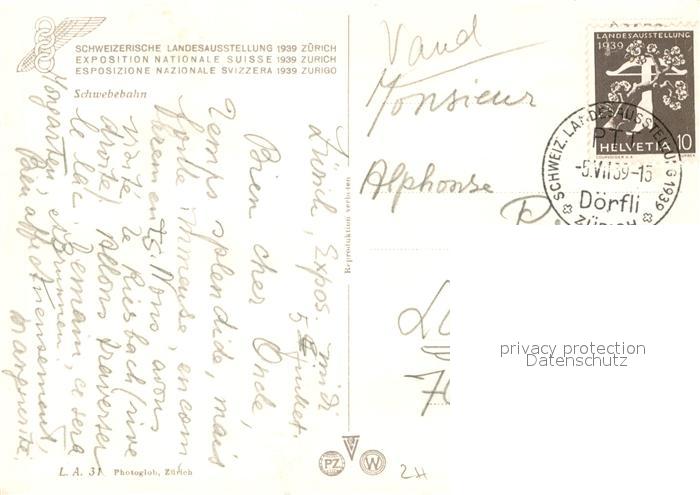 SCHWEIZERISCHE LANDESAUSSTELLUNG 1939 ZÜRICH
EXPOSITION NATIONALE SUISSE 1939 ZURICH
ESPOSIZIONE NAZIONALE SVIZZERA 1939 ZURIGO
Schwebebahn
Zürich, Expos. midi
5 Juillet.
Bien cher Oncle,
Temps splendide, mais
foule énorme, en com
Nous avons
visité le Riesbach (rive
droite). Allons traverser
le lac. Demain, ce sera
Morgarten, et Brunnen.
Bien affectueusement,
Marguerite.
Reproduktion verboten
L. A. 31 Photoglob, Zürich
PZ
W
2H
Vaud
Monsieur
Alphonse
LANDESAUSSTELLUNG
1939
HELVETIA 10
SCHWEIZ. LANDESAUSSTELLUNG 1939
PTT
-5.VII.39-13
Dörfli
ZÜRICH
privacy protection
Datenschutz